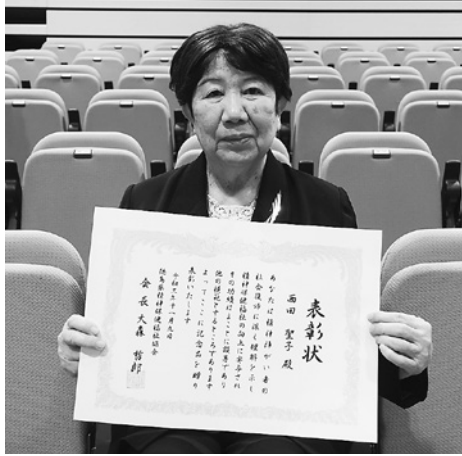 表彰状
西田 聖子 殿
あなたは精神障がい者の
社会復帰に深く理解を示し
精神保健福祉の向上に寄与され
その功績はまことに顕著であり
他の模範とするところであります
よってここに記念品を贈り
表彰いたします
令和六年十一月九日
徳島県精神保健福祉協会
会長 大森 哲郎